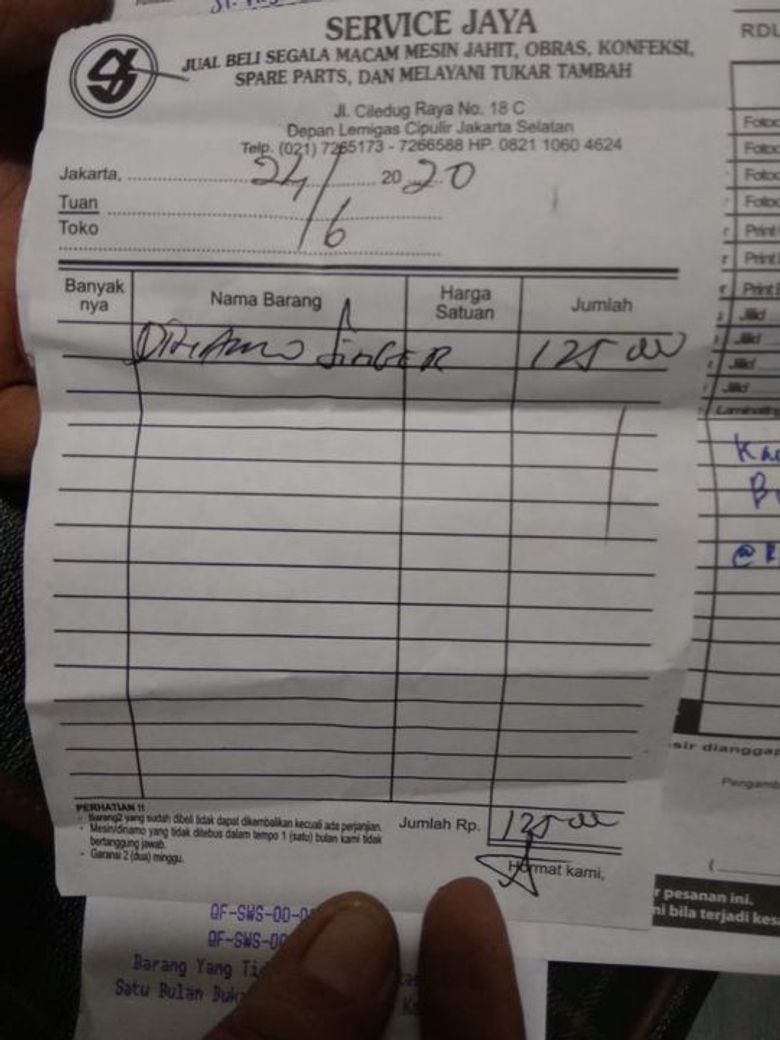 SERVICE JAYA
JUAL BELI SEGALA MACAM MESIN JAHIT, OBRAS, KONFEKSI,
SPARE PARTS, DAN MELAYANI TUKAR TAMBAH
Jl. Ciledug Raya No. 18 C
Depan Lemigas Cipulir Jakarta Selatan
Telp. (021) 7265173 - 7266588 HP. 0821 1060 4624
Jakarta, 24/6 2020
Tuan
Toko
Banyak nya Nama Barang Harga Satuan Jumlah
SINGER 125
PERHATIAN !!
- Barang2 yang sudah dibeli tidak dapat dikembalikan kecuali ada perjanjian.
- Mesin/dinamo yang tidak ditebus dalam tempo 1 (satu) bulan kami tidak
bertanggung jawab.
- Garansi 2 (dua) minggu.
Jumlah Rp. 125
Hormat kami,
RDU
Print
Print
Jilid
Jilid
Jilid
Jilid
sir dianggap
r pesanan ini.
ni bila terjadi kes
QF-SWS-00-0
QF-SWS-00
Barang Yang Ti
Satu Bulan Buk